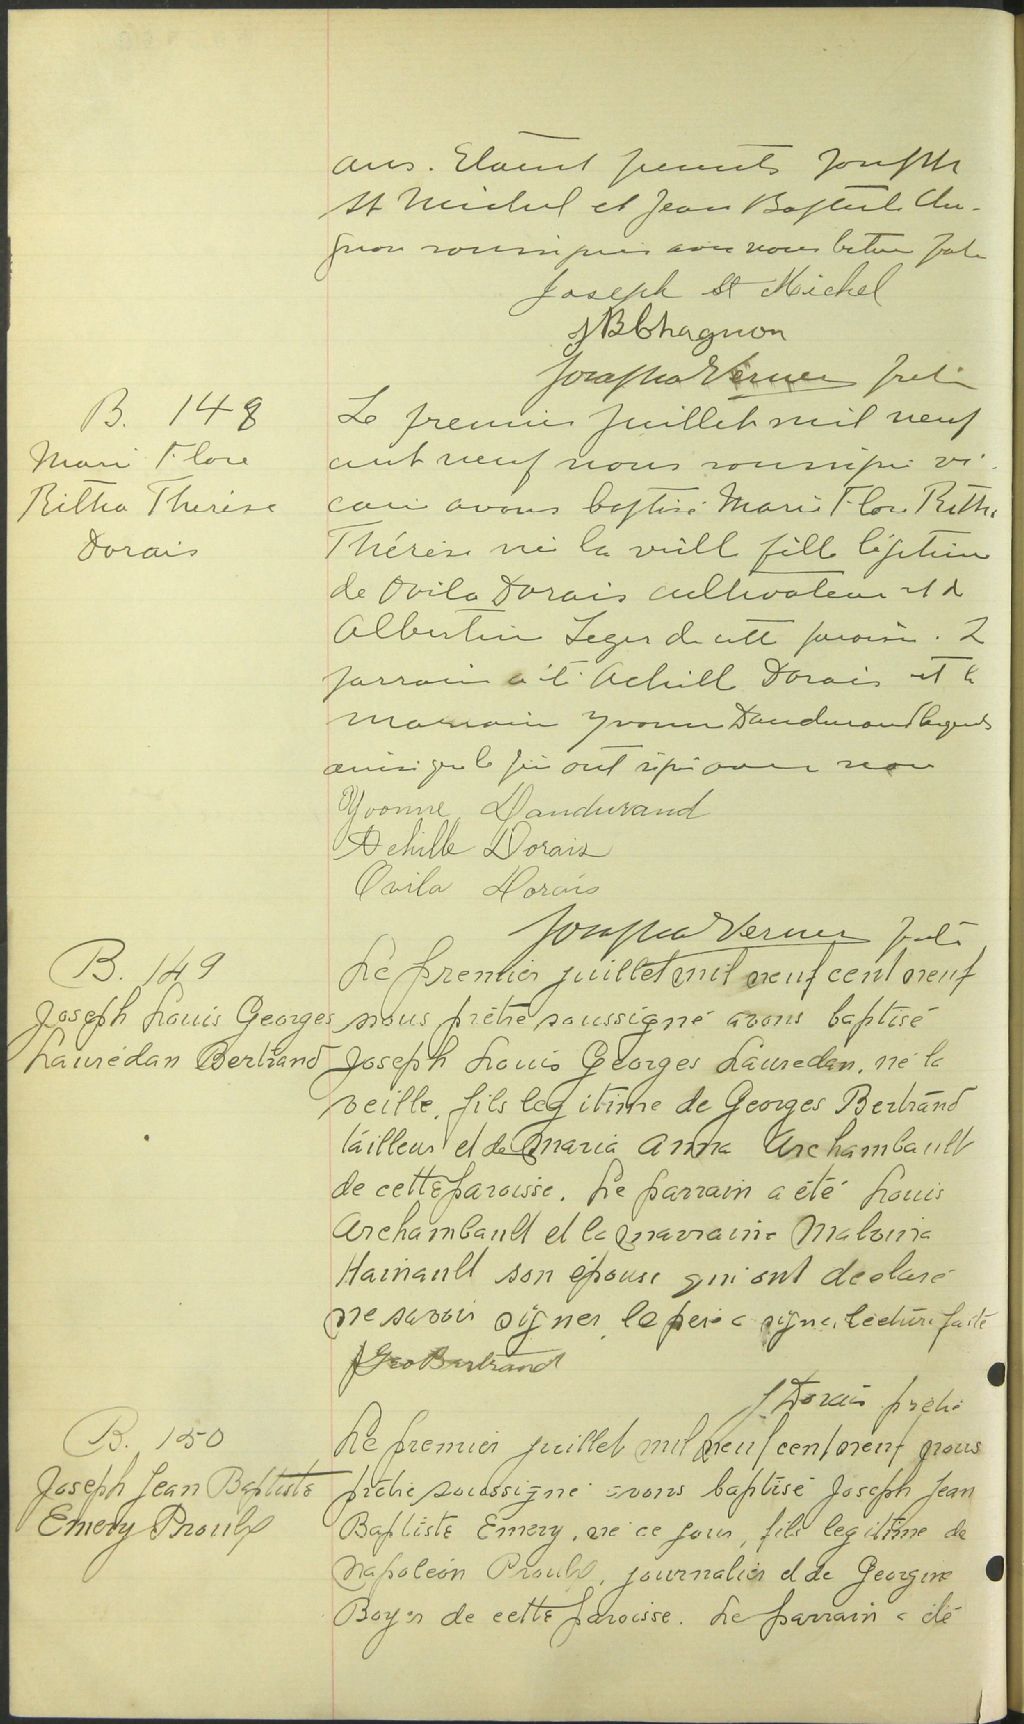 ans. Etaient présents Joseph
St Michel et Jean Baptiste Cha-
gnon soussignés avec nous lecture faite
Joseph St Michel
JB Chagnon
Joseph Verner ptre
B. 148
Marie Flore
Ritha Thérèse
Dorais
Le premier juillet mil neuf
cent neuf nous soussigné vi-
caire avons baptisé Marie Flore Ritha
Thérèse née la veille fille légitime
de Ovila Dorais cultivateur et de
Albertine Leger de cette paroisse. Le
parrain a été Achille Dorais et la
marraine Yvonne Dandurand lesquels
ainsi que le père ont signé avec nous
Yvonne Dandurand
Achille Dorais
Ovila Dorais
Joseph Verner ptre
B. 149
Joseph Louis Georges
Laurédan Bertrand
Le premier juillet mil neuf cent neuf
nous prêtre soussigné avons baptisé
Joseph Louis Georges Lauredan, né la
veille, fils legitime de Georges Bertrand
tailleur et de Maria Anna Archambault
de cette paroisse. Le parrain a été Louis
Archambault et la marraine Malvina
Hainault son épouse qui ont declaré
ne savoir signer, le père a signé, lecture faite
J Geo Bertrand
J Dorais prêtre
B. 150
Joseph Jean Baptiste
Emery Proulx
Le premier juillet mil neuf cent neuf nous
prêtre soussigné avons baptisé Joseph Jean
Baptiste Emery, né ce jour, fils legitime de
Napoléon Proulx, journalier et de Georgine
Boyer de cette paroisse. Le parrain a été